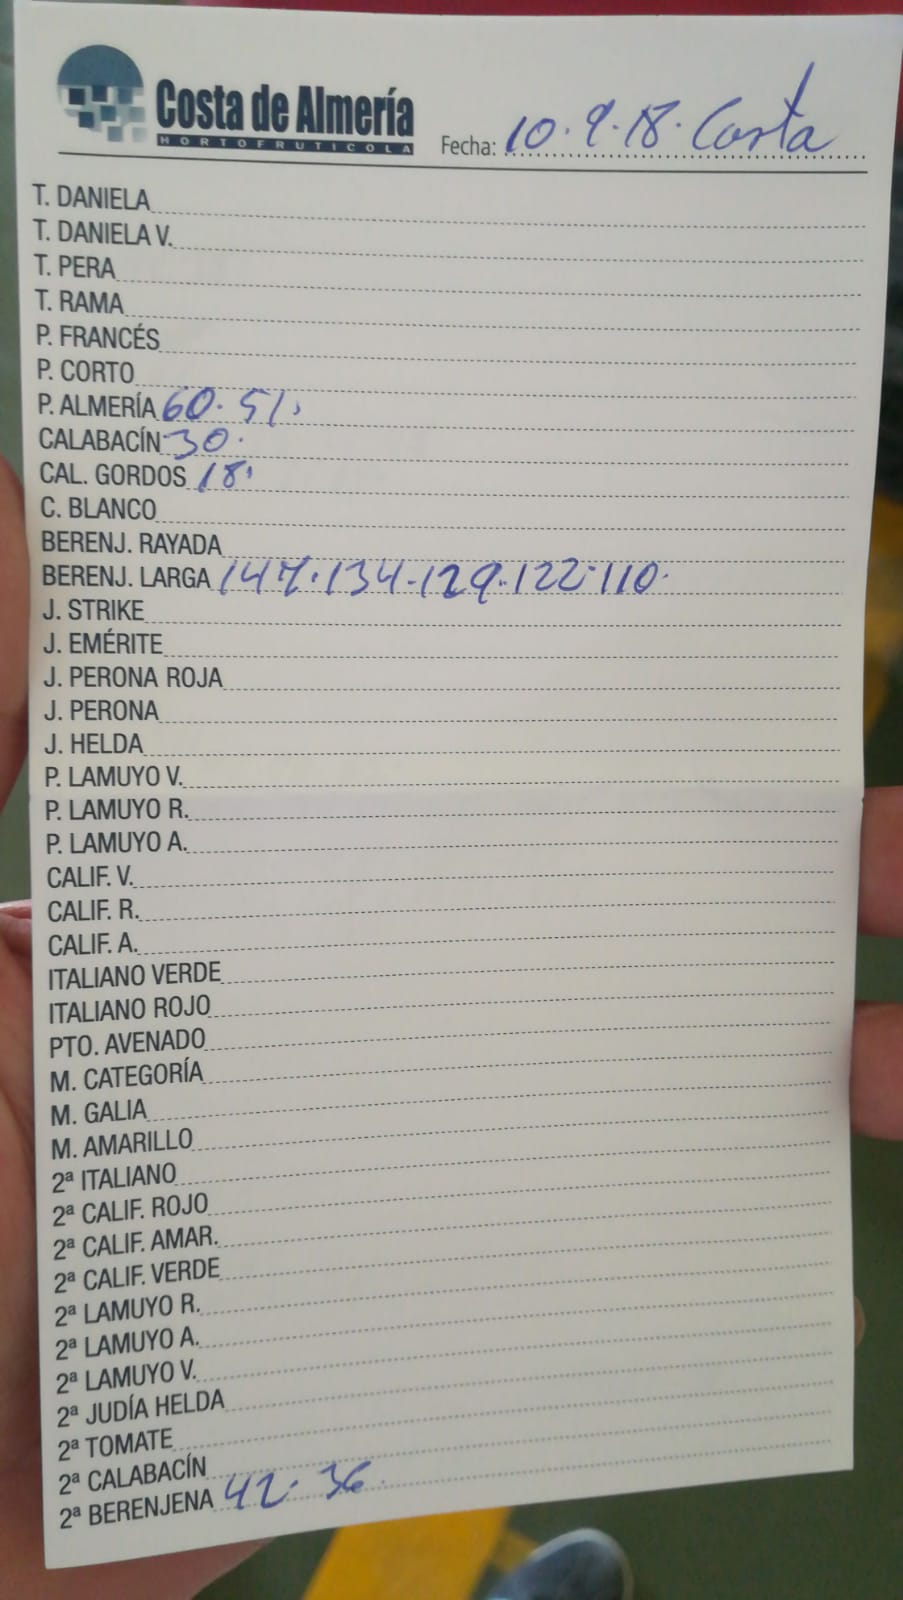 Costa de Almería
HORTOFRUTICOLA
Fecha: 10.9.18. Costa
T. DANIELA
T. DANIELA V.
T. PERA
T. RAMA
P. FRANCÉS
P. CORTO
P. ALMERÍA 60. 51.
CALABACÍN 30.
CAL. GORDOS 18.
C. BLANCO
BERENJ. RAYADA
BERENJ. LARGA 147.134-129-122-110.
J. STRIKE
J. EMÉRITE
J. PERONA ROJA
J. PERONA
J. HELDA
P. LAMUYO V.
P. LAMUYO R.
P. LAMUYO A.
CALIF. V.
CALIF. R.
CALIF. A.
ITALIANO VERDE
ITALIANO ROJO
PTO. AVENADO
M. CATEGORÍA
M. GALIA
M. AMARILLO
2ª ITALIANO
2ª CALIF. ROJO
2ª CALIF. AMAR.
2ª CALIF. VERDE
2ª LAMUYO R.
2ª LAMUYO A.
2ª LAMUYO V.
2ª JUDÍA HELDA
2ª TOMATE
2ª CALABACÍN
2ª BERENJENA 42. 36.